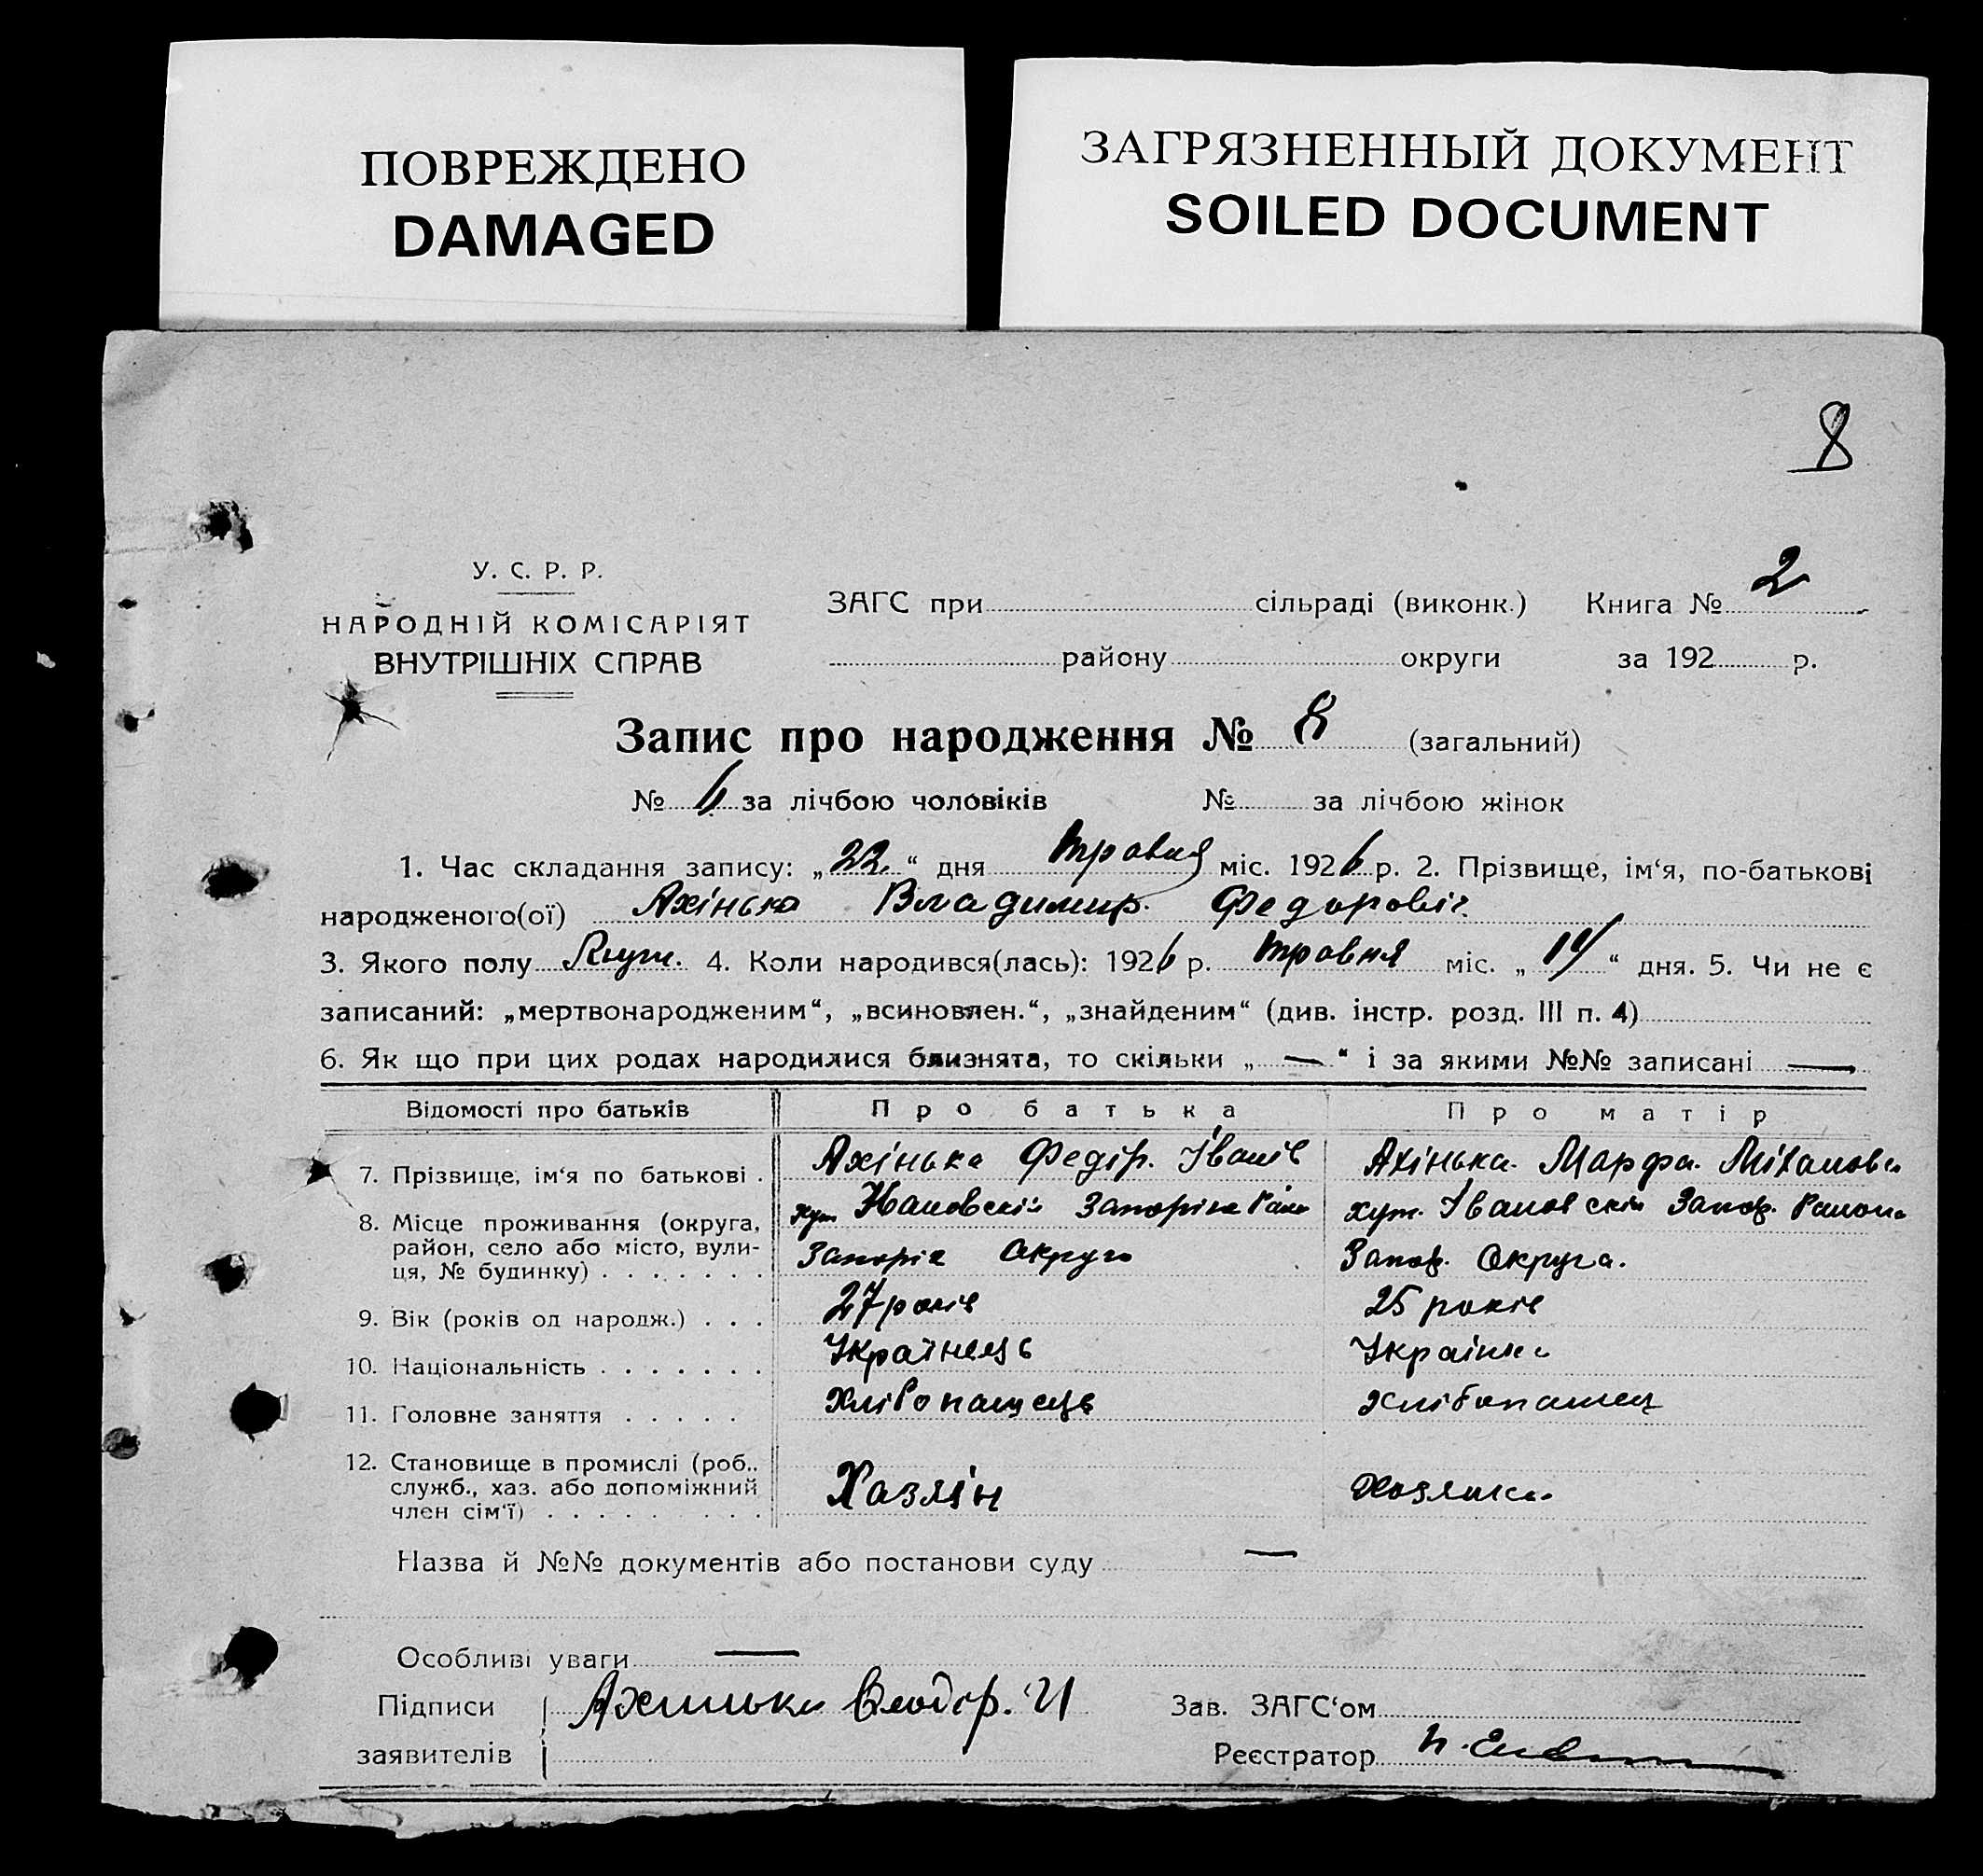 ПОВРЕЖДЕНО
DAMAGED
ЗАГРЯЗНЕННЫЙ ДОКУМЕНТ
SOILED DOCUMENT
8
У. С. Р. Р.
НАРОДНІЙ КОМІСАРІЯТ
ВНУТРІШНІХ СПРАВ
ЗАГС при сільраді (виконк.) Книга № 2
району округи за 192 р.
Запис про народження № 8 (загальний)
№ 6 за лічбою чоловіків № за лічбою жінок
1. Час складання запису: „22" дня травня міс. 1926 р. 2. Прізвище, ім'я, по-батькові
народженого(ої) Ахінько Владимир Федоровіч
3. Якого полу Муж. 4. Коли народився(лась): 1926 р. травня міс. „14" дня. 5. Чи не є
записаний: „мертвонародженим", „всиновлен.", „знайденим" (див. інстр. розд. III п. 4)
6. Як що при цих родах народилися близнята, то скільки „—" і за якими №№ записані —
Відомості про батьків Про батька Про матір
7. Прізвище, ім'я по батькові . Ахінька Федір. Іванів Ахінька Марфа
8. Місце проживання (округа, район, село або місто, вулиця, № будинку) . . . . . . . хут. Запоріж округа хут. Івановскій Запор. Района
Запор. Округа.
9. Вік (років од народж.) . . . 27 років 25 років
10. Національність . . . . . . . Українець Українка
11. Головне заняття . . . . . Хлібопашець Хлібопашец
12. Становище в промислі (роб., служб., хаз. або допоміжний член сім'ї) . . . . . . . . . Хазяін Хозяйка
Назва й №№ документів або постанови суду —
Особливі уваги —
Підписи Ахинько
заявителів
Зав. ЗАГС'ом
Реєстратор